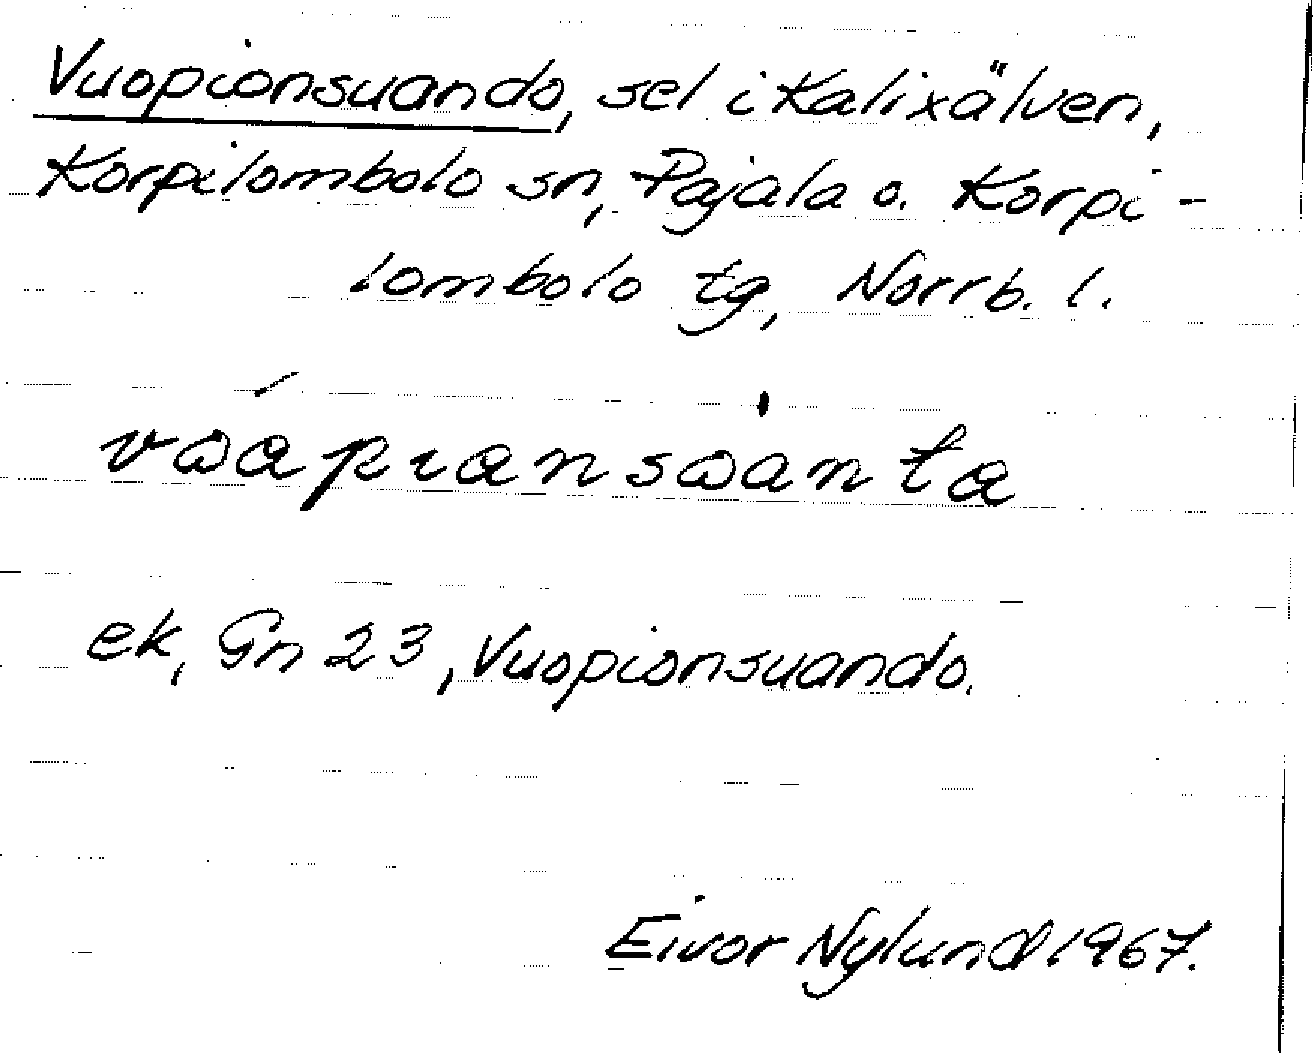 Vuopionsuando, sel i Kalixälven,
Korpilombolo sn, Pajala o. Korpi-
lombolo tg, Norrb. l.
ek, Gn 23, Vuopionsuando.
Eivor Nylund 1967.